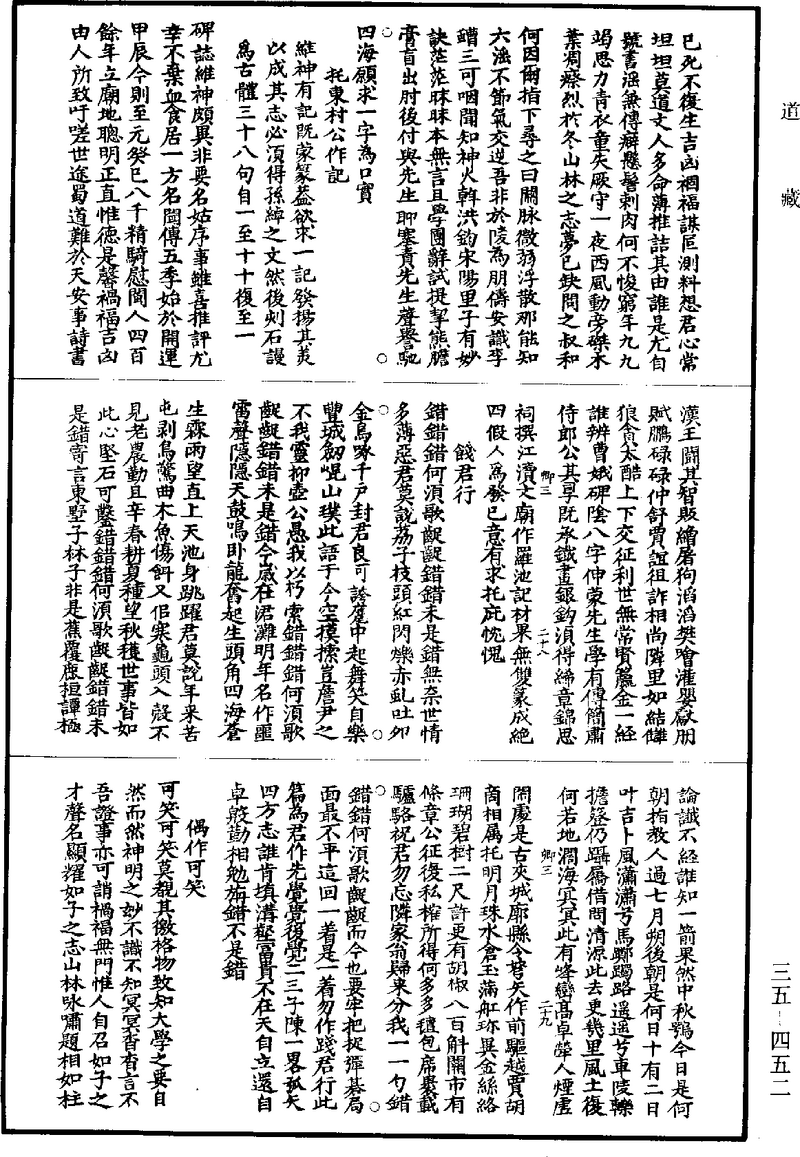 道藏
已死不復生吉凶禍福謀叵測料想君心常
坦坦莫道丈人多命薄推詰其由誰是尤自
號書淫無傳癖懸髻刺肉何不悛窮年九九
竭思力青衣童失厥守一夜西風動旁磔木
葉凋瘵烈於冬山林之志夢已缺問之叔和
何因爾指下尋之曰關脉微弱浮散那能知
六淫不節氣交逆吾非於陵為朋儔安識李
螬三可咽聞知神火韓洪鈞宋陽里子有妙
訣茫茫昧昧本無言且學團辭試提挈熊膽
膏肓出肘後付與先生聊塞責先生聲譽馳
四海願求一字為口實
托東村公作記
維神有記既蒙篆蓋欲求一記發揚其美
以成其志必須得孫綽之文然後刻石謾
為古體三十八句自一至十十復至一
碑誌維神頗異非要名姑序事雖喜推評尤
幸不棄血食居一方名閥傳五季始於開運
甲辰今則至元癸巳八千精騎慰閬人四百
餘年立廟地聰明正直惟德是馨禍福吉凶
由人所致吁嗟世途蜀道難於天安事詩書
漢王鬪其智販繒屠狗滔滔樊噲灌嬰獻朋
賦鵬碌碌仲舒賈誼徂詐相尚隣里如結讎
狼貪太酷上下交征利世無常賢籯金一經
誰辨曹娥碑陰八字仲蒙先生學有傳簡肅
侍郎公其享既承鐵畫銀鈎須得締章錦思
祠撰江瀆文廟作羅池記材果無雙篆成絶
四假人為發已意有求托庇忱愧
錢君行
錯錯錯何須歌齪齪錯錯未是錯無奈世情
多薄惡君莫說荔子枝頭紅閃爍亦虬吐卵
金烏啄千戶封君良可誇甕中起舞笑自樂
豐城劒崐山璞此語于今空摸搎豈詹尹之
不我靈抑壺公愚我以朽索錯錯錯何須歌
齪齪錯錯未是錯今歲在涒灘明年名作噩
雷聲隱隱天鼓鳴卧龍奮起生頭角四海蒼
生霖雨望直上天池身跳躍君莫說年來苦
屯剥鳥驚曲木魚傷餌又但寒龜頭入殼不
見老農勤且辛春耕夏種望秋穫世事皆如
此心堅石可鑿錯錯錯何須歌齪齪錯錯未
是錯寄言東墅子林子非是蕉覆鹿桓譚極
論讖不經誰知一箭果然中秋鶚今日是何
朝拵教人過七月朔後朝是何日十有二日
叶吉卜風瀟瀟兮馬躑躅路遥遥兮車陵轢
擔簦仍躡屩借問清源此去更幾里風土復
何若地濶海冥冥此有峰巒高卓犖人煙虛
閙處是古夾城廓縣令弩矢作前驅越賈胡
商相属托明月珠水倉玉滿舡珎異金絲絡
珊瑚碧樹二尺許更有胡椒八百斛關市有
條章公征後私榷所得何多多穜包席裹載
驢駱祝君勿忘隣家翁歸来分我一一勺錯
錯錯何須歌齪齪而今也要牢把捉彈棊局
面最不平這回一着是一着勿作踐君行此
篇為君作先覺覺後覺二三子陳一畧孤矢
四方志誰肯填溝壑富貴不在天自立還自
卓慇勤相勉旃錯不是錯
偶作可笑
可笑可笑莫覩其徼格物致知大學之要自
然而然神明之妙不識不知冥冥杳杳言不
吾證事亦可誚禍福無門惟人自召如子之
才聲名顯耀如子之志山林咏嘯題相如柱
卿三
二十八
卿三
二十九
三五-四五二